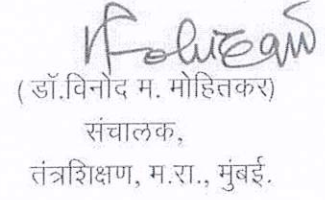 (डॉ.विनोद म. मोहितकर)
संचालक,
तंत्रशिक्षण, म.रा., मुंबई.